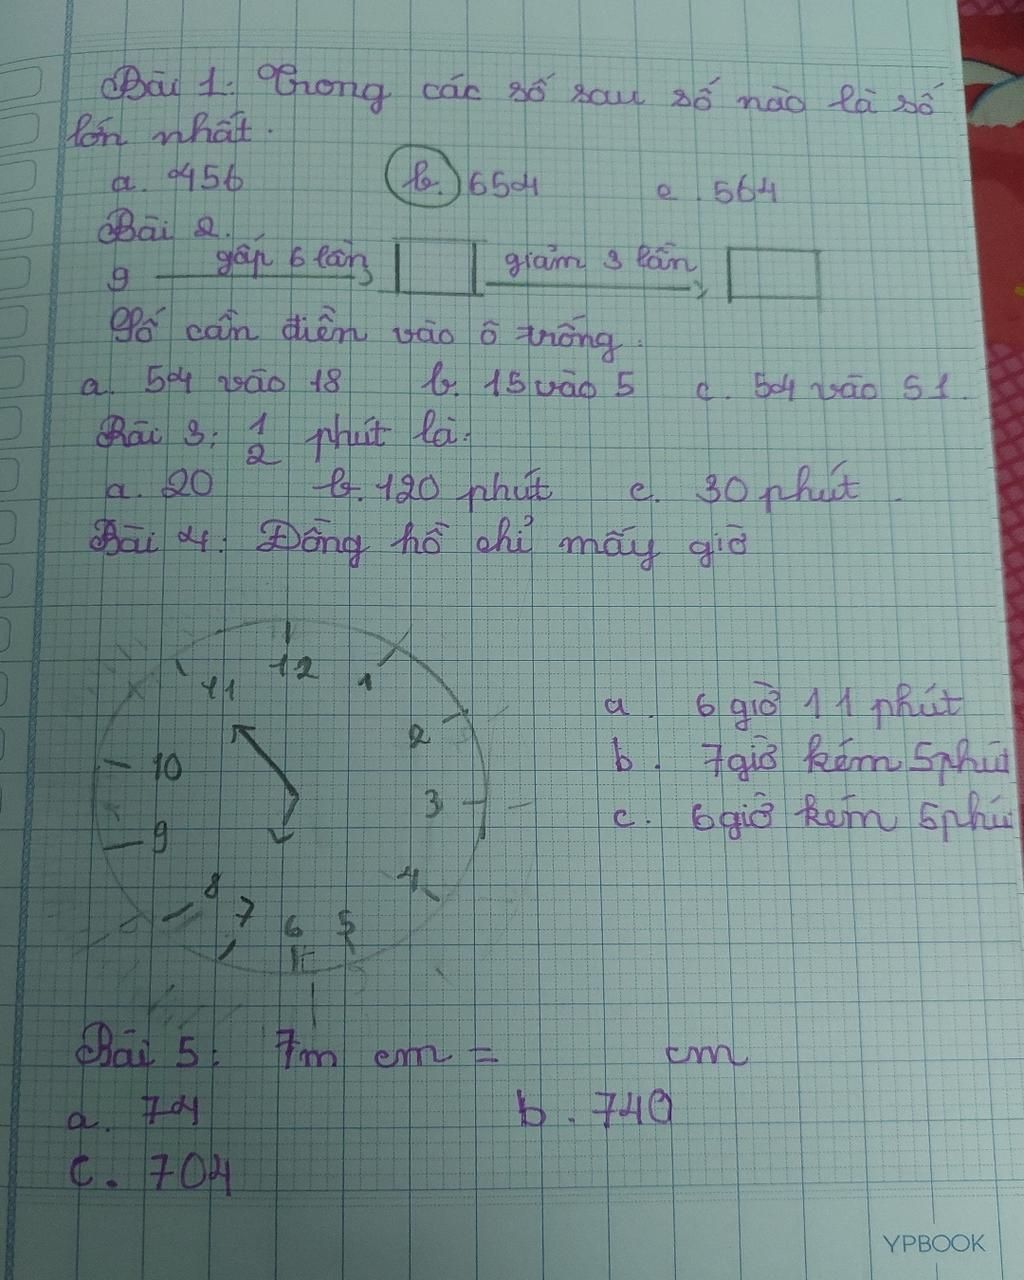 Bài 1: Trong các số sau số nào là số
lớn nhất.
a. 456 b. 654 c. 564
Bài 2.
9 gấp 6 lần giảm 3 lần
Số cần điền vào ô trống.
a. 54 vào 18 b. 15 vào 5 c. 54 vào 51.
Bài 3: 1/2 phút là.
a. 20 b. 120 phút c. 30 phút.
Bài 4: Đồng hồ chỉ mấy giờ
12
11 1
2
10
3
9
4
8
7 6 5
a. 6 giờ 11 phút
b. 7 giờ kém 5 phút
c. 6 giờ kém 5 phú
Bài 5: 7m cm = cm
a. 74 b. 740
c. 704
YPBOOK